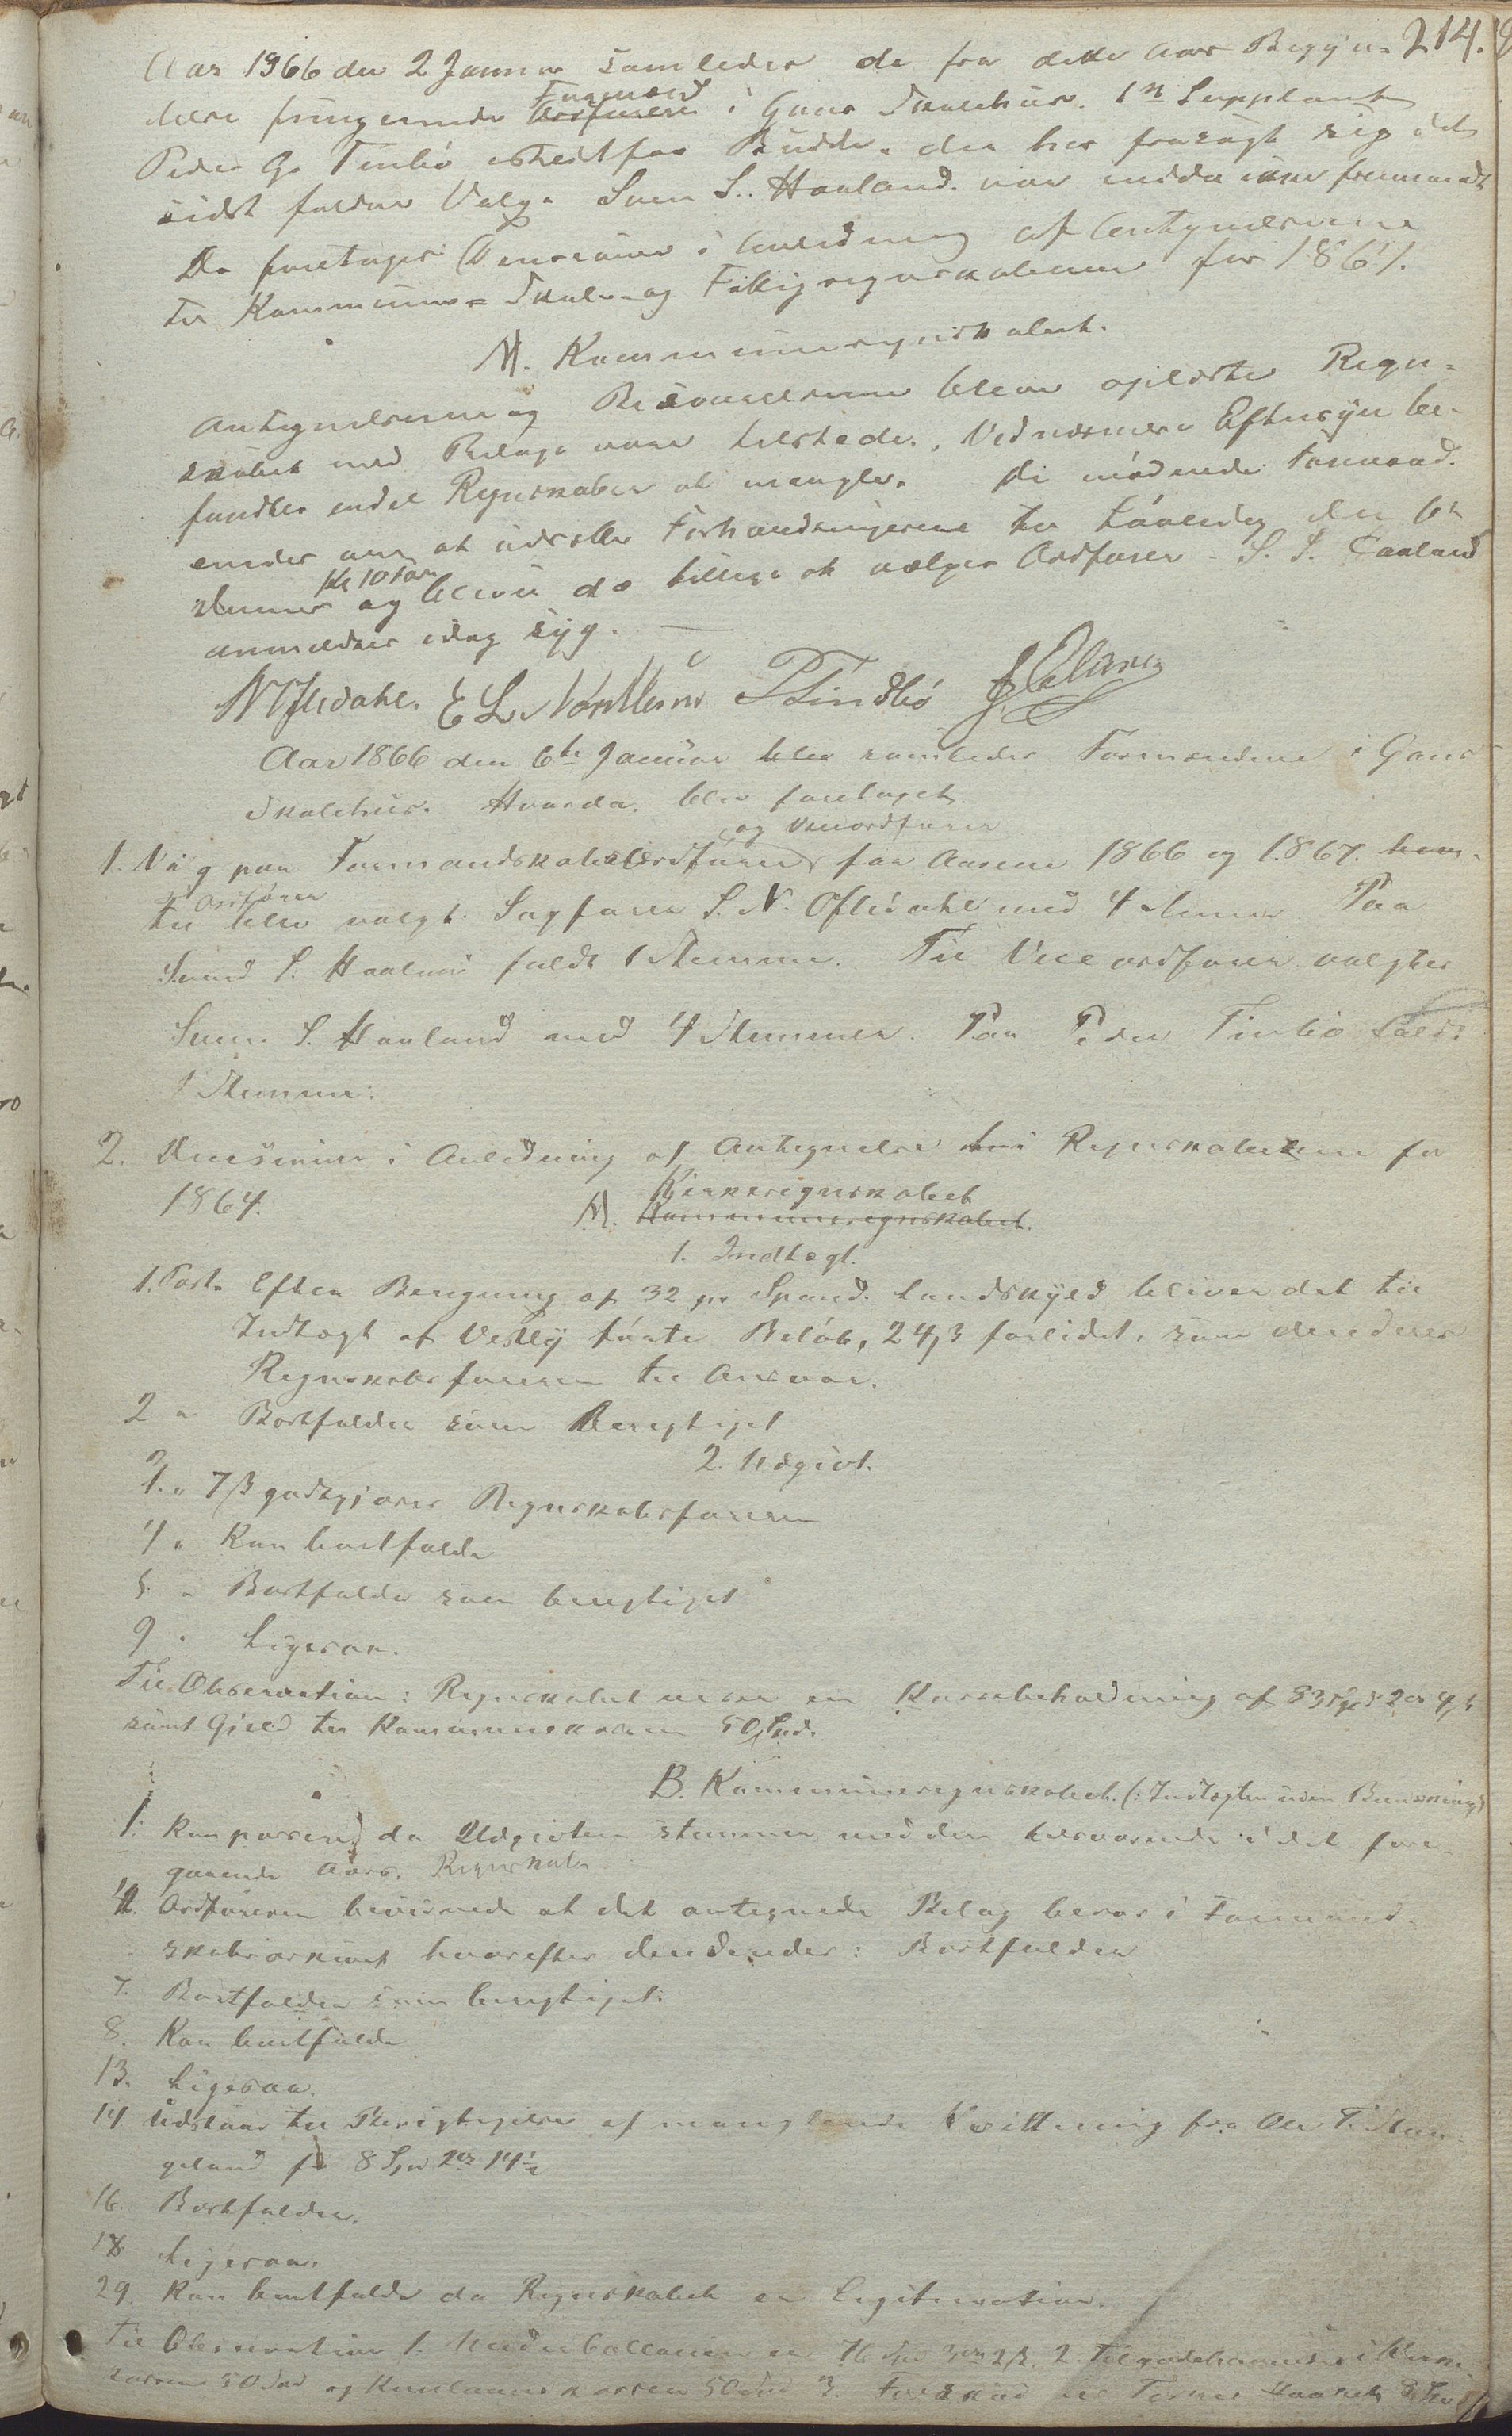 214.
Aar 1866 den 2 Januar samledes de fra dette Aars Begyn-
delse fungerende Ordførere Formænd i Gans Skolehus. 1ste Supplant
Peder G. Tinbø istedetfor Budde, der har frasagt sig det
sidst faldne Valg. Sven S. Haaland var endda ikke fremmødt
De foretoges Decisioner i Anledning af Antegnelserne
til Kommune- Skole- og Fattigregnskaberne for 1864.
A. Kommuneregnskabet.
Antegnelserne og Besvarelserne bleve oplæste Regn-
skabet med Bilage vare tilstede. Ved nærmere Eftersyn be-
fandtes endel Regnskaber at mangle. De mødende Formænd
enedes om at udsætte Forhandlingerne til Løverdag den 6te
dennes Kl 10 Form og bliver da tillige at vælge Ordfører. S. S. Haaland
anmeldtes idag syg.
E L P Tindbö
Aar 1866 den 6te Januar blev samledes Formændene i Gans
Skolehus. Hvorda blev foretaget
1. Valg paa Formandskabsordfører og Viceordfører for Aarene 1866 og 1867. her-
til Ordfører blev valgt Sagfører S. N. Oftedahl med 4 Stemmer. Paa
Svend S. Haaland faldt 1 Stemme. Til Viceordfører valgtes
Sven S. Haaland med 4 Stemmer. Paa Peder Tinbø faldt
1 Stemme.
2. Decisioner i Anledning af Antegnelse til i Regnskaberne for
1864.
Kirkeregnskabet
A. Kommuneregnskabet.
1. Indtægt.
1. Post. Efter Beregning af 32 pr Spand Landskyld bliver det til
Indtægt af Vestly førte Beløb, 24 β forlidet, som decideres
Regnskabsføreren til Ansvar.
2 " Bortfalder som berigtiget
2. Udgivt.
1. " 7 β godtgjøres Regnskabsføreren
4 " Kan bortfalde
5 " Bortfalder som berigtiget
9 " Ligesaa.
Til Observation: Regnskabet viser en Kassebeholdning af 83 Spd 2
samt Gjeld til Kommunekassen 50 Spd.
B. Kommuneregnskabet. (: Indtægten uden Bemærkning)
1. Kan passere da Udgivten stemmer med den tilsvarende i det fore-
gaaende Aars Regnskab
4. Ordføreren bevidnede at det antegnede Bilag beror i Formand-
skabsarkivet hvorefter decideredes: Bortfalder
7. Bortfalder som berigtiget.
8. Kan bortfalde
13. Ligesaa.
14. Udstaar til Berigtigelse af manglende Kvittering fra Ole T.
geland for 8 Sp 2 14
16. Bortfalder.
18 Ligesaa.
29. Kan bortfalde da Regnskabet er Legitimation.
Til Observation 1. Underballancen er 2. Tilgodehavende i Kirke
kassen 50 Spd og 50 Spd 3. Forskud